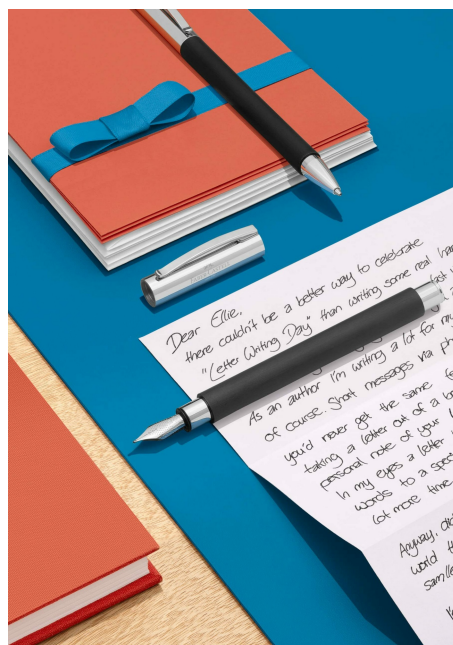 Dear Ellie,
there couldn't be a better way to celebrate
"Letter Writing Day" than writing some real
As an author I'm writing a lot for my
of course. Short messages via ph
you'd never get the same fe
taking a letter out of a
personal note of your
In my eyes a letter
words to a spec
lot more time
Anyway,
world th